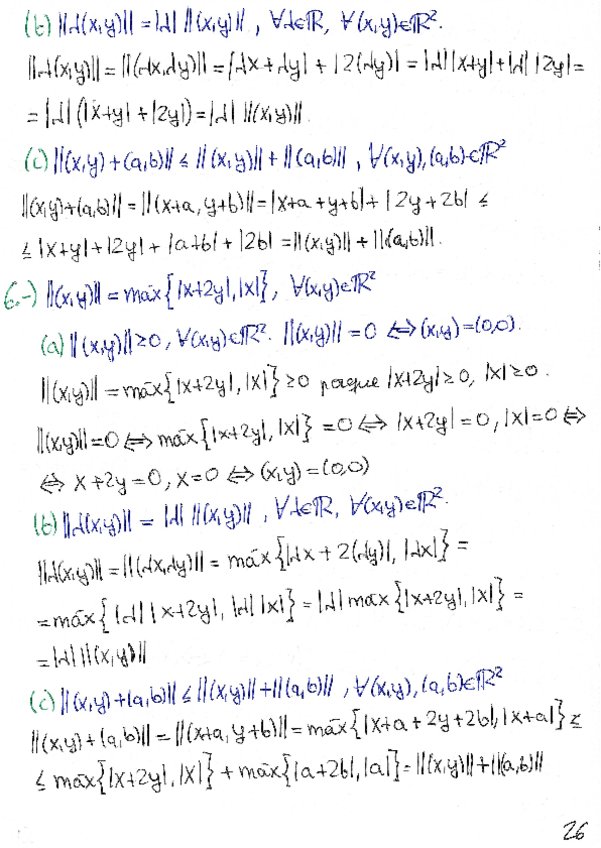 (b) ||λ(x,y)|| = |λ| ||(x,y)|| , ∀λ∈ℝ, ∀(x,y)∈ℝ².
||λ(x,y)|| = ||(λx,λy)|| = |λx+λy| + |2(λy)| = |λ||x+y|+|λ| |2y| =
= |λ| (|x+y| + |2y|) = |λ| ||(x,y)||.
(c) ||(x,y) + (a,b)|| ≤ ||(x,y)|| + ||(a,b)|| , ∀(x,y),(a,b)∈ℝ²
||(x,y)+(a,b)|| = ||(x+a, y+b)|| = |x+a+y+b| + |2y+2b| ≤
≤ |x+y| + |2y| + |a+b| + |2b| = ||(x,y)|| + ||(a,b)||.
6.-) ||(x,y)|| = máx{|x+2y|,|x|}, ∀(x,y)∈ℝ²
(a) ||(x,y)|| ≥ 0, ∀(x,y)∈ℝ². ||(x,y)|| = 0 ⇔ (x,y) = (0,0).
||(x,y)|| = máx{|x+2y|,|x|} ≥ 0 porque |x+2y| ≥ 0, |x| ≥ 0.
||(x,y)|| = 0 ⇔ máx{|x+2y|,|x|} = 0 ⇔ |x+2y| = 0, |x| = 0 ⇔
⇔ x+2y = 0, x = 0 ⇔ (x,y) = (0,0)
(b) ||λ(x,y)|| = |λ| ||(x,y)|| , ∀λ∈ℝ, ∀(x,y)∈ℝ².
||λ(x,y)|| = ||(λx,λy)|| = máx{|λx + 2(λy)|, |λx|} =
= máx{|λ| |x+2y|, |λ| |x|} = |λ| máx{|x+2y|,|x|} =
= |λ| ||(x,y)||
(c) ||(x,y)+(a,b)|| ≤ ||(x,y)|| + ||(a,b)|| , ∀(x,y),(a,b)∈ℝ²
||(x,y)+(a,b)|| = ||(x+a, y+b)|| = máx{|x+a+2y+2b|, |x+a|} ≤
≤ máx{|x+2y|,|x|} + máx{|a+2b|,|a|} = ||(x,y)|| + ||(a,b)||
26